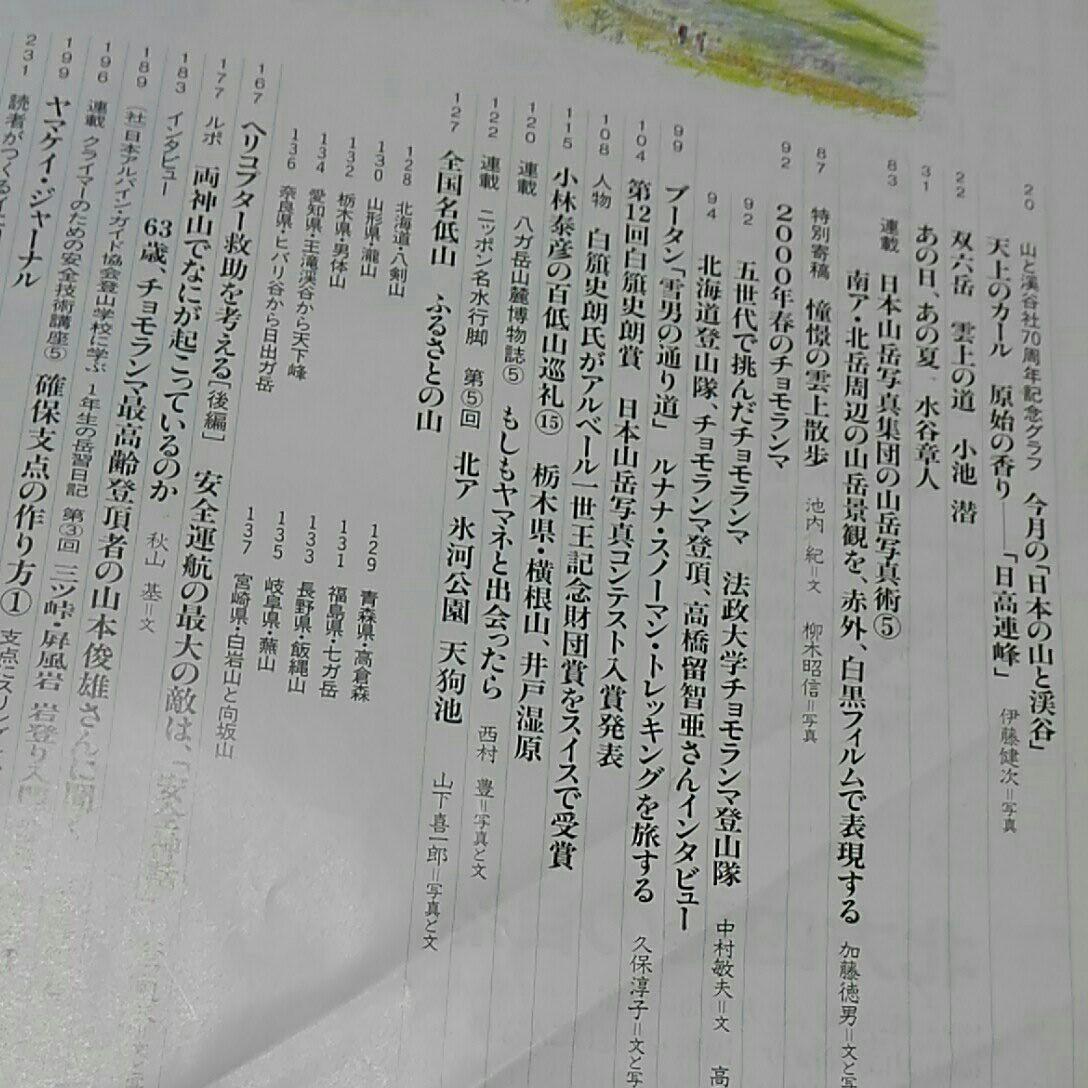 20 山と溪谷社70周年記念グラフ 今月の「日本の山と渓谷」
天上のカール 原始の香り——「日高連峰」 伊藤健次＝写真
22 双六岳 雲上の道 小池 潜
31 あの日、あの夏 水谷章人
83 連載 日本山岳写真集団の山岳写真術⑤
南ア・北岳周辺の山岳景観を、赤外、白黒フィルムで表現する 加藤徳男＝文と写
87 特別寄稿 憧憬の雲上散歩 池内 紀＝文 柳木昭信＝写真
92 2000年春のチョモランマ
92 五世代で挑んだチョモランマ 法政大学チョモランマ登山隊 中村敏夫＝文 高
94 北海道登山隊、チョモランマ登頂、高橋留智亜さんインタビュー
99 ブータン「雪男の通り道」 ルナナ・スノーマン・トレッキングを旅する 久保淳子＝文と写
104 第12回白籏史朗賞 日本山岳写真コンテスト入賞発表
108 人物 白籏史朗氏がアルベール一世王記念財団賞をスイスで受賞
115 小林泰彦の百低山巡礼⑮ 栃木県・横根山、井戸湿原
120 連載 八ガ岳山麓博物誌⑤ もしもヤマネと出会ったら 西村 豊＝写真と文
122 連載 ニッポン名水行脚 第⑤回 北ア 氷河公園 天狗池 山下喜一郎＝写真と文
127 全国名低山 ふるさとの山
128 北海道・八剣山
129 青森県・高倉森
130 山形県・瀧山
131 福島県・七ガ岳
132 栃木県・男体山
133 長野県・飯縄山
134 愛知県・王滝渓谷から天下峰
135 岐阜県・蕪山
136 奈良県・ヒバリ谷から日出ガ岳
137 宮崎県・白岩山と向坂山
167 ヘリコプター救助を考える[後編] 安全運航の最大の敵は、「安全神話」
177 ルポ 両神山でなにが起こっているのか 秋山 基＝文
183 インタビュー 63歳、チョモランマ最高齢登頂者の山本俊雄さんに聞く
189 (社)日本アルパイン・ガイド協会登山学校に学ぶ 1年生の岳習日記 第③回 三ツ峠・屏風岩 岩登り入門
196 連載 クライマーのための安全技術講座⑤ 確保支点の作り方① 支点にスリング
199 ヤマケイ・ジャーナル
231 読者がつくるイエ